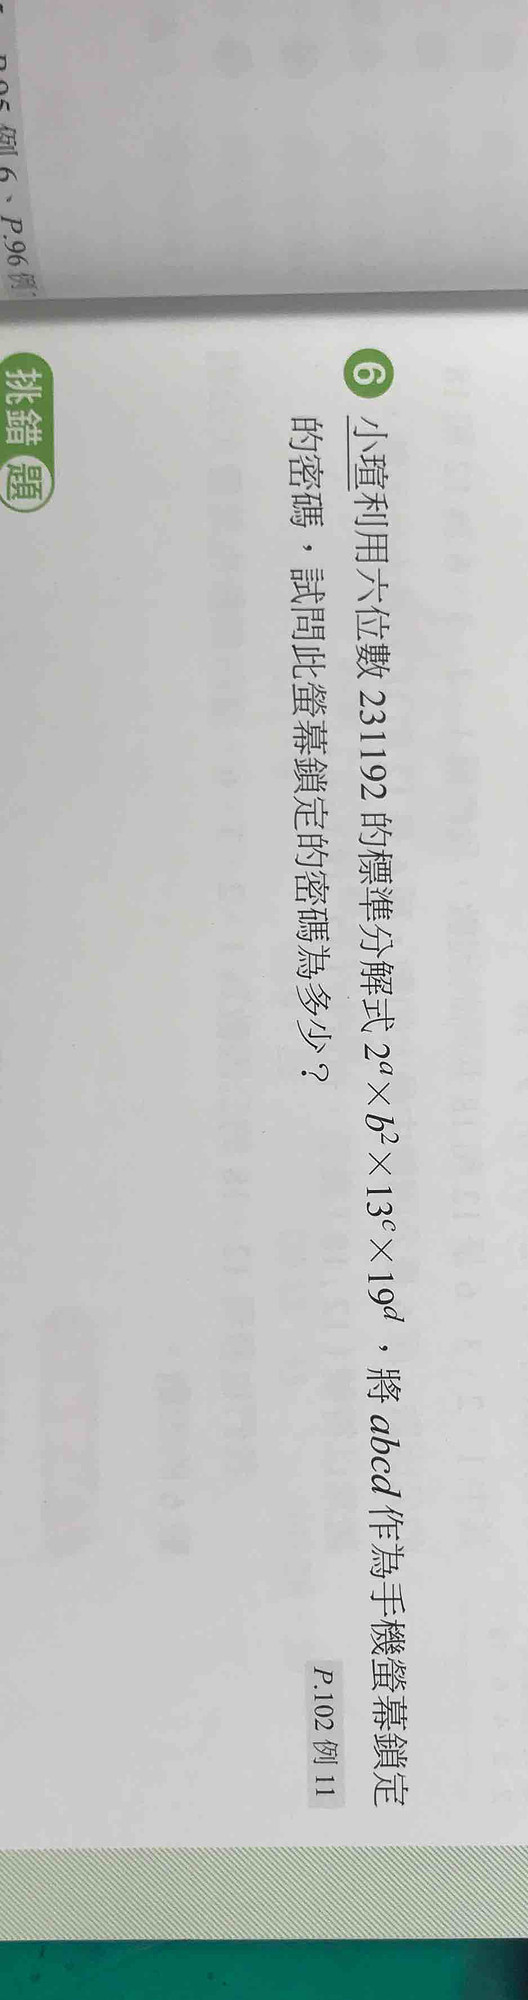 P.95 例 6、P.96 例
6 小瑄利用六位數 231192 的標準分解式 2ᵃ×b²×13ᶜ×19ᵈ，將 abcd 作為手機螢幕鎖定
的密碼，試問此螢幕鎖定的密碼為多少？
P.102 例 11
挑錯題